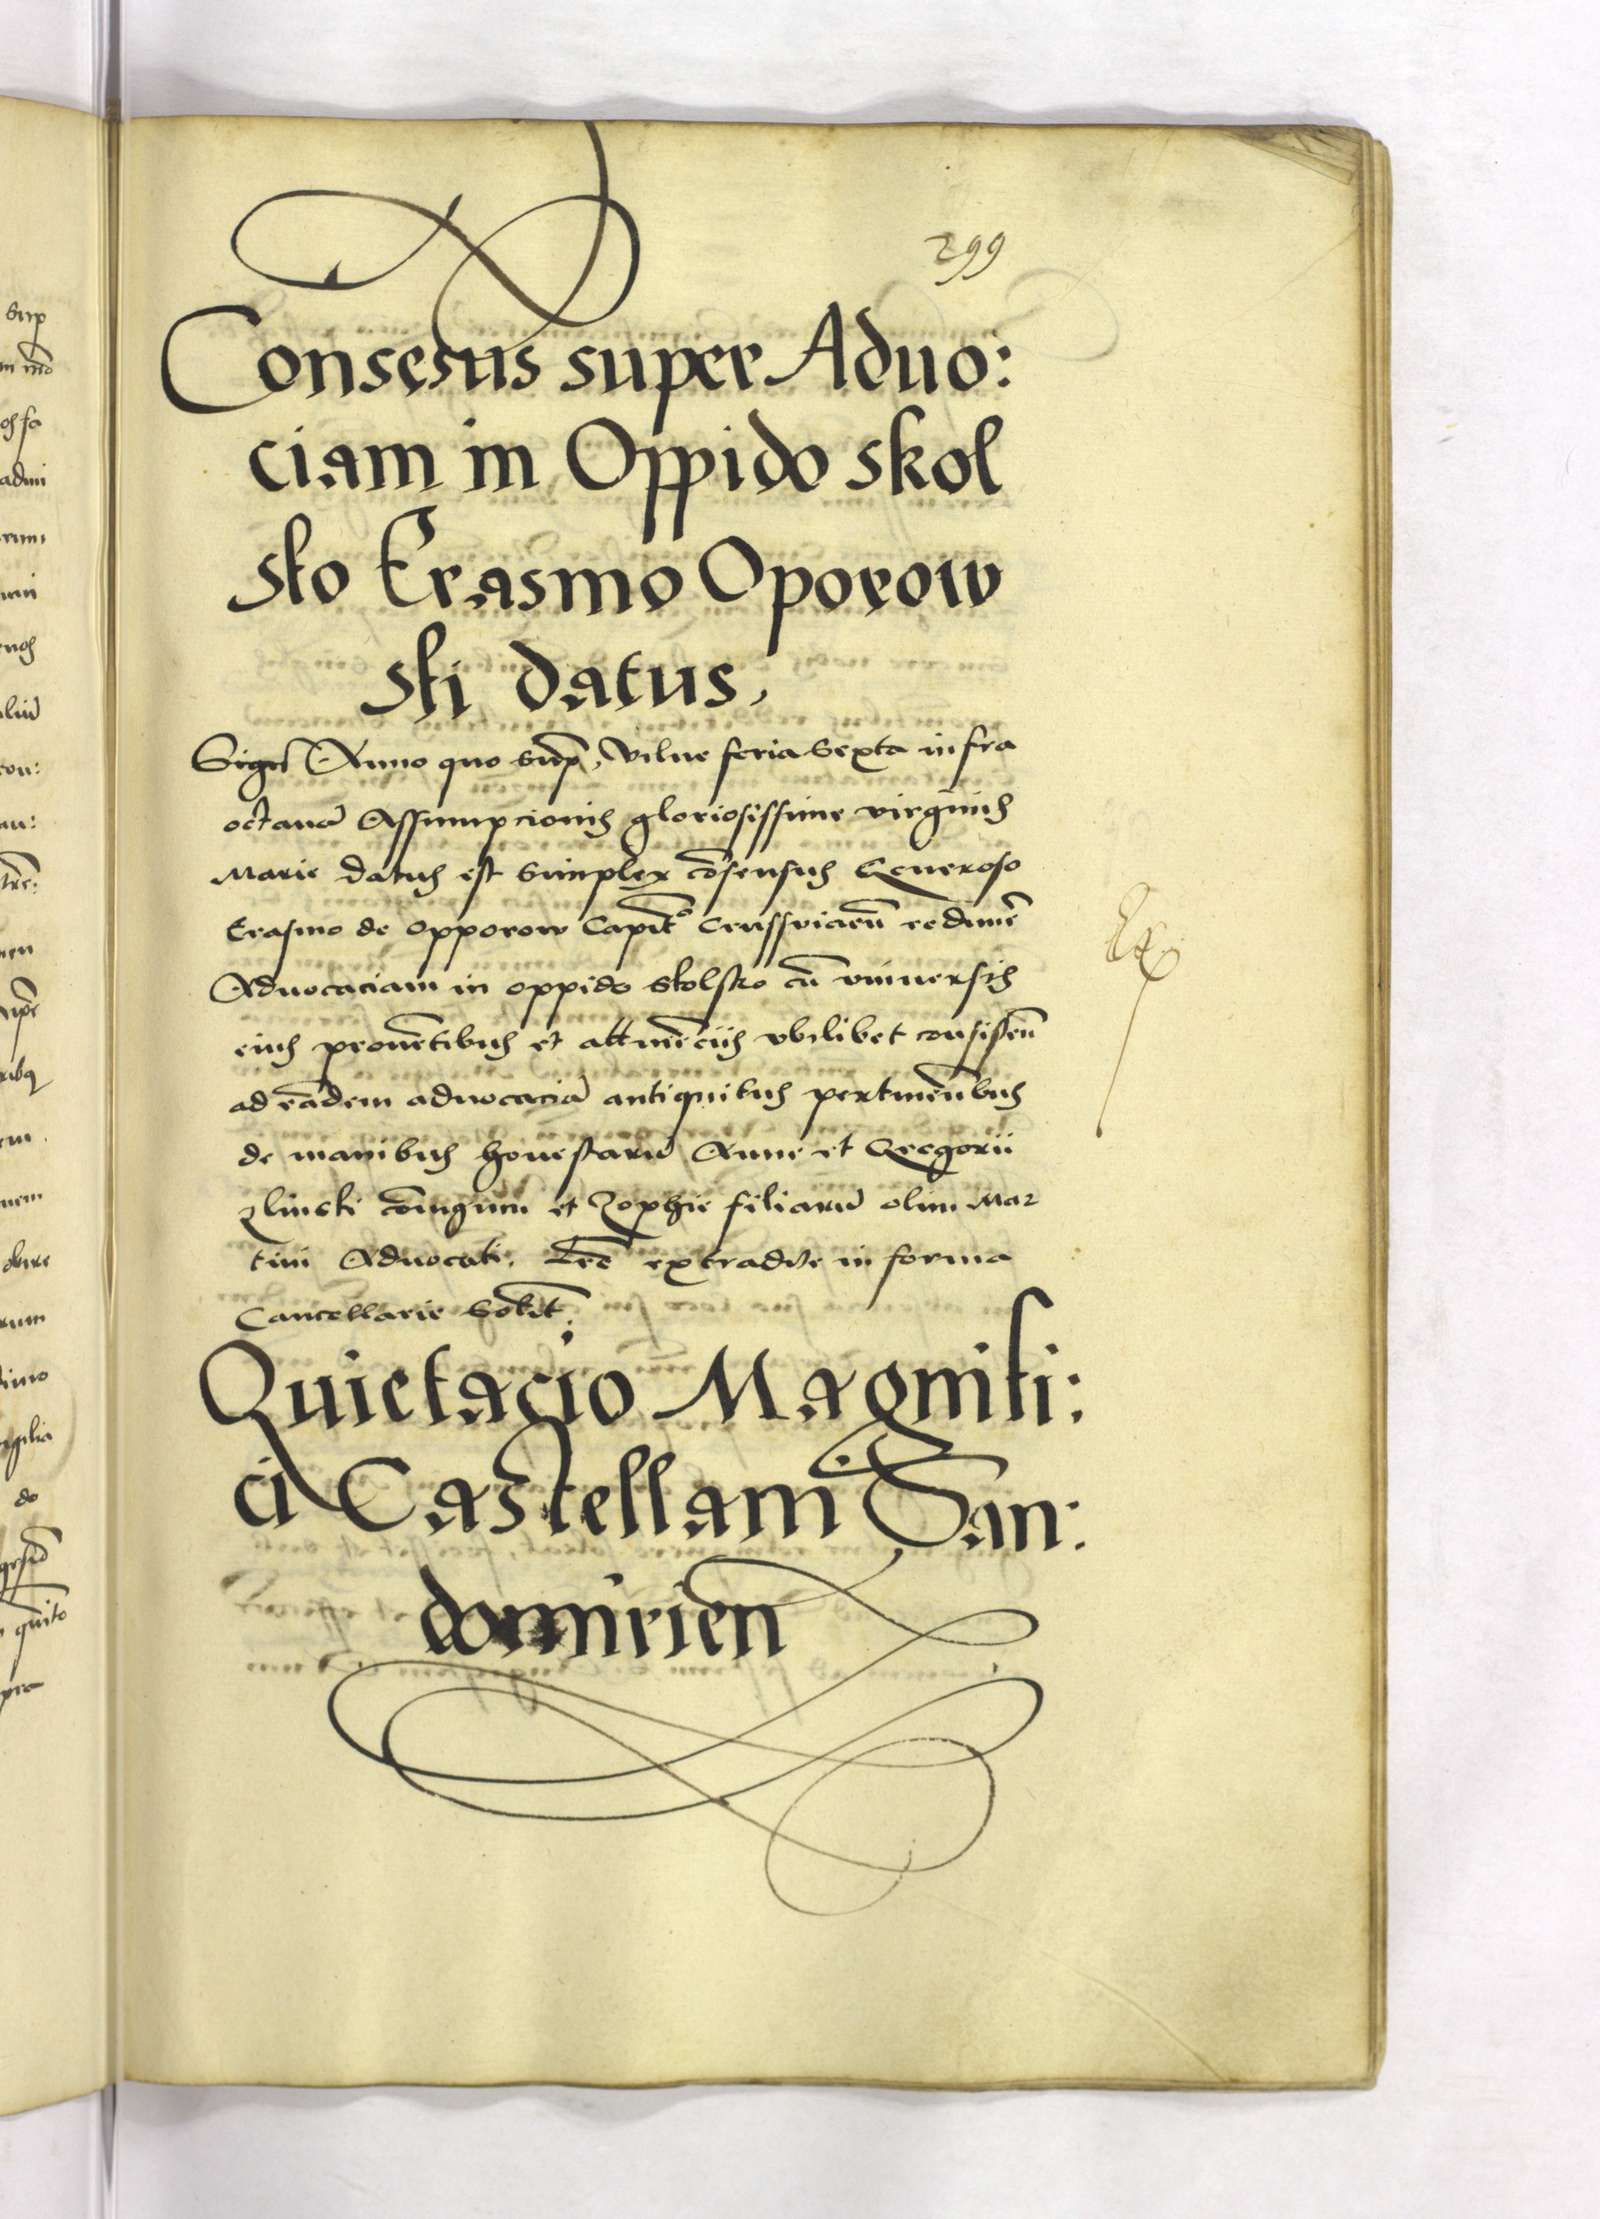 299
Consesus super Aduo:
ciam in Oppido skol
sko Erasmo Oporow
ski datus,
Anno quo sup̄, vilne feria sexta infra
octauā Assumpcionis gloriosissime virginis
Marie datus est simplex cōsensus Generoso
Erasmo de Opporow Capit̄º Crussvicieñ redimē
Aduocaciam in oppido skolsko cū vniuersis
eius prouētibus et attinēciis vbilibet consisteñ
ad eādem aduocaciā antiquitus pertineñbus
de manibus honestarū Anne et Gregorii
zlinski cōiugum et Zophie filiarū olim Mar
tini Aduocati. Lrē extradite in forma
Cancellarie solit̄.
Quietacio Magnifi:
ci Castellani San:
domirien̄